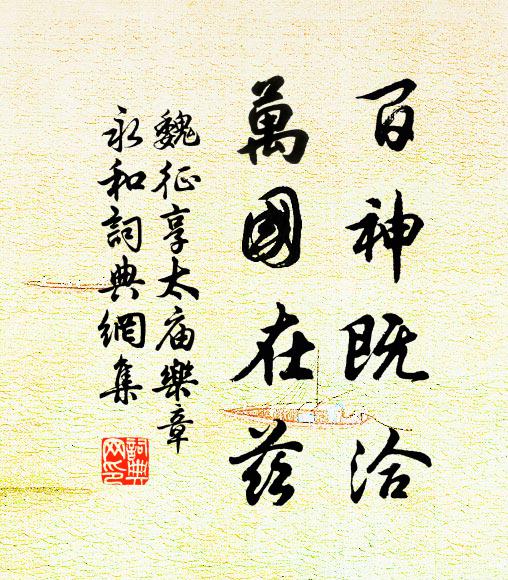 百神既洽
萬國在茲
魏征享太庙樂章
永和詞典網集
詞典网印